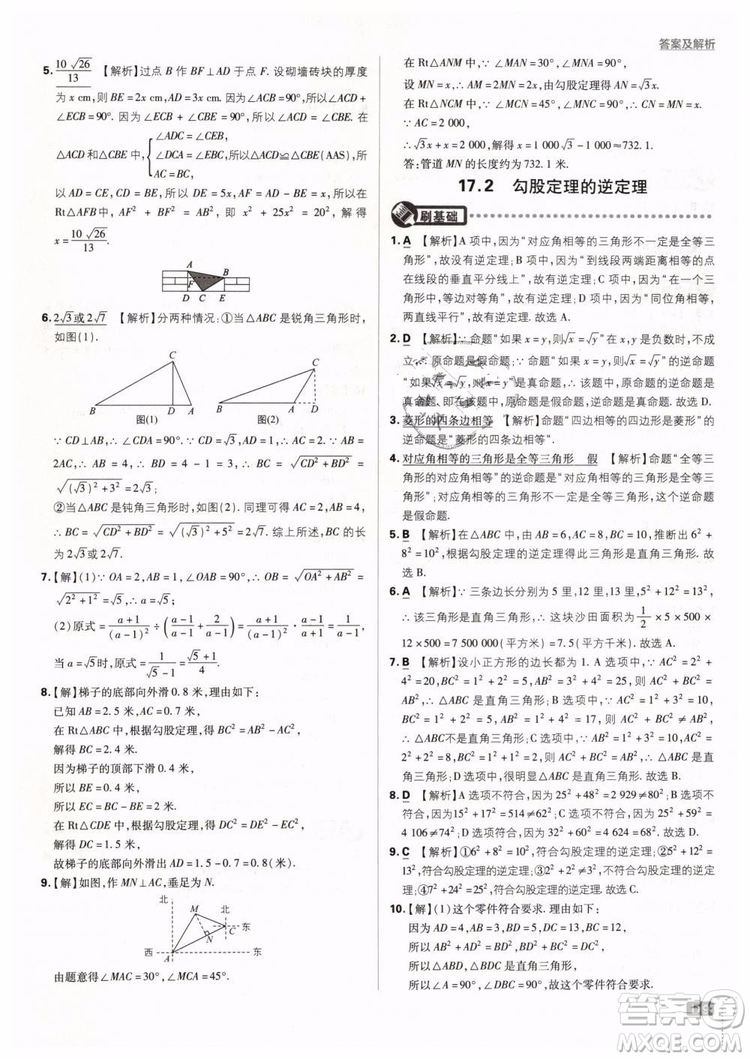 答案及解析
5. 10√26/13 【解析】过点 B 作 BF⊥AD 于点 F. 设砌墙砖块的厚度
为 x cm,则 BE=2x cm,AD=3x cm. 因为∠ACB=90°,所以∠ACD+
∠ECB=90°. 因为∠ECB+∠CBE=90°,所以∠ACD=∠CBE. 在
△ACD 和△CBE 中,{∠ADC=∠CEB, ∠DCA=∠EBC, AC=CB, 所以△ACD≌△CBE(AAS),
所以 AD=CE,CD=BE. 所以 DE=5x cm,AF=AD-BE=x cm. 在
Rt△AFB 中,AF²+BF²=AB²,即 x²+25x²=20²,解得 x=
10√26/13.
A
B
D C E
6. 2√3或2√7 【解析】分两种情况:①当△ABC 是锐角三角形时,
如图(1).
C
B D A
图(1)
C
B A D
图(2)
∵CD⊥AB,∴∠CDA=90°. ∵CD=√3,AD=1,∴AC=2. ∵AB=
2AC,∴AB=4. ∴BD=4-1=3. ∴BC=√(CD²+BD²)=
√((√3)²+3²)=2√3.
②当△ABC 是钝角三角形时,如图(2). 同理可得 AC=2,AB=4.
∴BC=√(CD²+BD²)=√((√3)²+5²)=2√7. 综上所述,BC 的长为
2√3或2√7.
7. 【解】(1)∵OA=2,AB=1,∠OAB=90°,∴OB=√(OA²+AB²)=
√(2²+1²)=√5. ∴a=√5.
(2)原式=(a+1)/(a-1)²÷(a-1+2)/(a-1)=(a+1)/(a-1)²·(a-1)/(a+1)=1/(a-1).
当 a=√5时,原式=1/(√5-1)=(√5+1)/4.
8. 【解】梯子的底部向外滑 0.8 米,理由如下:
根据题意得 AB=2.5 米,AC=0.7 米,
在 Rt△ABC 中,根据勾股定理得 BC²=AB²-AC²,
解得 BC=2.4 米.
因为梯子的顶部下滑 0.4 米,
所以 EC=BC-BE=2 米.
在 Rt△CDE 中,根据勾股定理得 DC²=DE²-CE²,
解得 DC=1.5 米,
故梯子的底部向外滑动 AD=1.5-0.7=0.8(米).
9. 【解】如图,作 MN⊥AC,垂足为 N.
北
北
M
C 东
N
西 A 东
由题意得∠MAC=30°,∠MCA=45°.
在 Rt△ANM 中,∵∠MAN=30°,∠MNA=90°,
设 MN=x,∴AM=2x,由勾股定理可得 AN=√3x.
在 Rt△NCM 中,∵∠MCN=45°,∠MNC=90°,∴CN=MN=x.
∵AC=2 000,
∴√3x+x=2 000,解得 x≈732.1.
答:管道 MN 的长度约为 732.1 米.
17.2 勾股定理的逆定理
刷基础
1. A 【解析】A 项中,因为“对应角相等的三角形不一定是全等三
角形”,故没有逆定理;B 项中,因为“到线段两端距离相等的点
在线段的垂直平分线上”,故有逆定理;C 项中,因为“在一个三
角形中,等边对等角”,故有逆定理;D 项中,因为“同位角相等,
两直线平行”,故有逆定理. 故选 A.
2. D 【解析】∵命题“如果 x=y,则√x=√y”,当 x=y 是负数时,不成
立,∴原命题是假命题. ∵“如果 x=y,那么√x=√y”的逆命题
“如果√x=√y,那么 x=y”是真命题,∴原命题是假命题,逆命题
为真命题. 即在该命题中,原命题的逆命题是真命题,原命题的
逆命题的逆命题是假命题. 故选 D.
3. 菱形的四条边相等 【解析】命题“四边相等的四边形是菱形”的
逆命题是“菱形的四条边相等”.
4. 对应角相等的三角形是全等三角形 假 【解析】命题“全等三
角形的对应角相等”的题设是“全等三角形”,结论是“对应角相
等”,故其逆命题是对应角相等的三角形是全等三角形,这个逆命题
是假命题.
5. B 【解析】在△ABC 中,由 AB=6,AC=8,BC=10,推断出 6²+
8²=10²,根据勾股定理的逆定理得出此三角形是直角三角形.
故选 B.
6. A 【解析】∵三条边长分别为 5 里,12 里,13 里,5²+12²=13²,
∴该三角形是直角三角形,∴这块沙田面积为1/2×5×500×
12×500=7 500 000(平方米)=7.5(平方千米). 故选 A.
7. B 【解析】设小正方形的边长都为 1. A 选项中,∵AC²=2²+
4²=20,BC²=1²+2²=5,AB²=3²+4²=25,∴AC²+BC²=AB²,
∴△ABC 是直角三角形;B 选项中,∵AC²=2²+3²=13,BC²=
1²+1²=2,AB²=2²+3²=13,∴AC²+BC²≠AB²,∴△ABC
不是直角三角形;C 选项中,∵AB²=1²+3²=10,AC²=
2²+2²=8,BC²=1²+1²=2,∴AC²+BC²=AB²,∴△ABC 是直
角三角形;D 选项中,很明显△ABC 是直角三角形. 故选 B.
8. D 【解析】A 选项不符合,因为 25²+48²=2 929≠80². B 选项不
符合,因为 15²+17²=514≠62². C 选项不符合,因为 25²+59²=
4 106≠74². D 选项符合,因为 32²+60²=4 624=68². 故选 D.
9. C 【解析】①6²+8²=10²,符合勾股定理的逆定理;②5²+12²=
13²,符合勾股定理的逆定理;③2²+2²≠3²,不符合勾股定理的逆
定理;④7²+24²=25²,符合勾股定理的逆定理. 故选 C.
10. 【解】(1)这个零件符合要求. 理由如下:
因为 AD=4,AB=3,BD=5,DC=13,BC=12,
所以 AB²+AD²=BD²,BD²+BC²=DC².
所以△ABD、△BDC 是直角三角形.
所以∠A=90°,∠DBC=90°,故这个零件符合要求.
答案圈
MXQE.COM